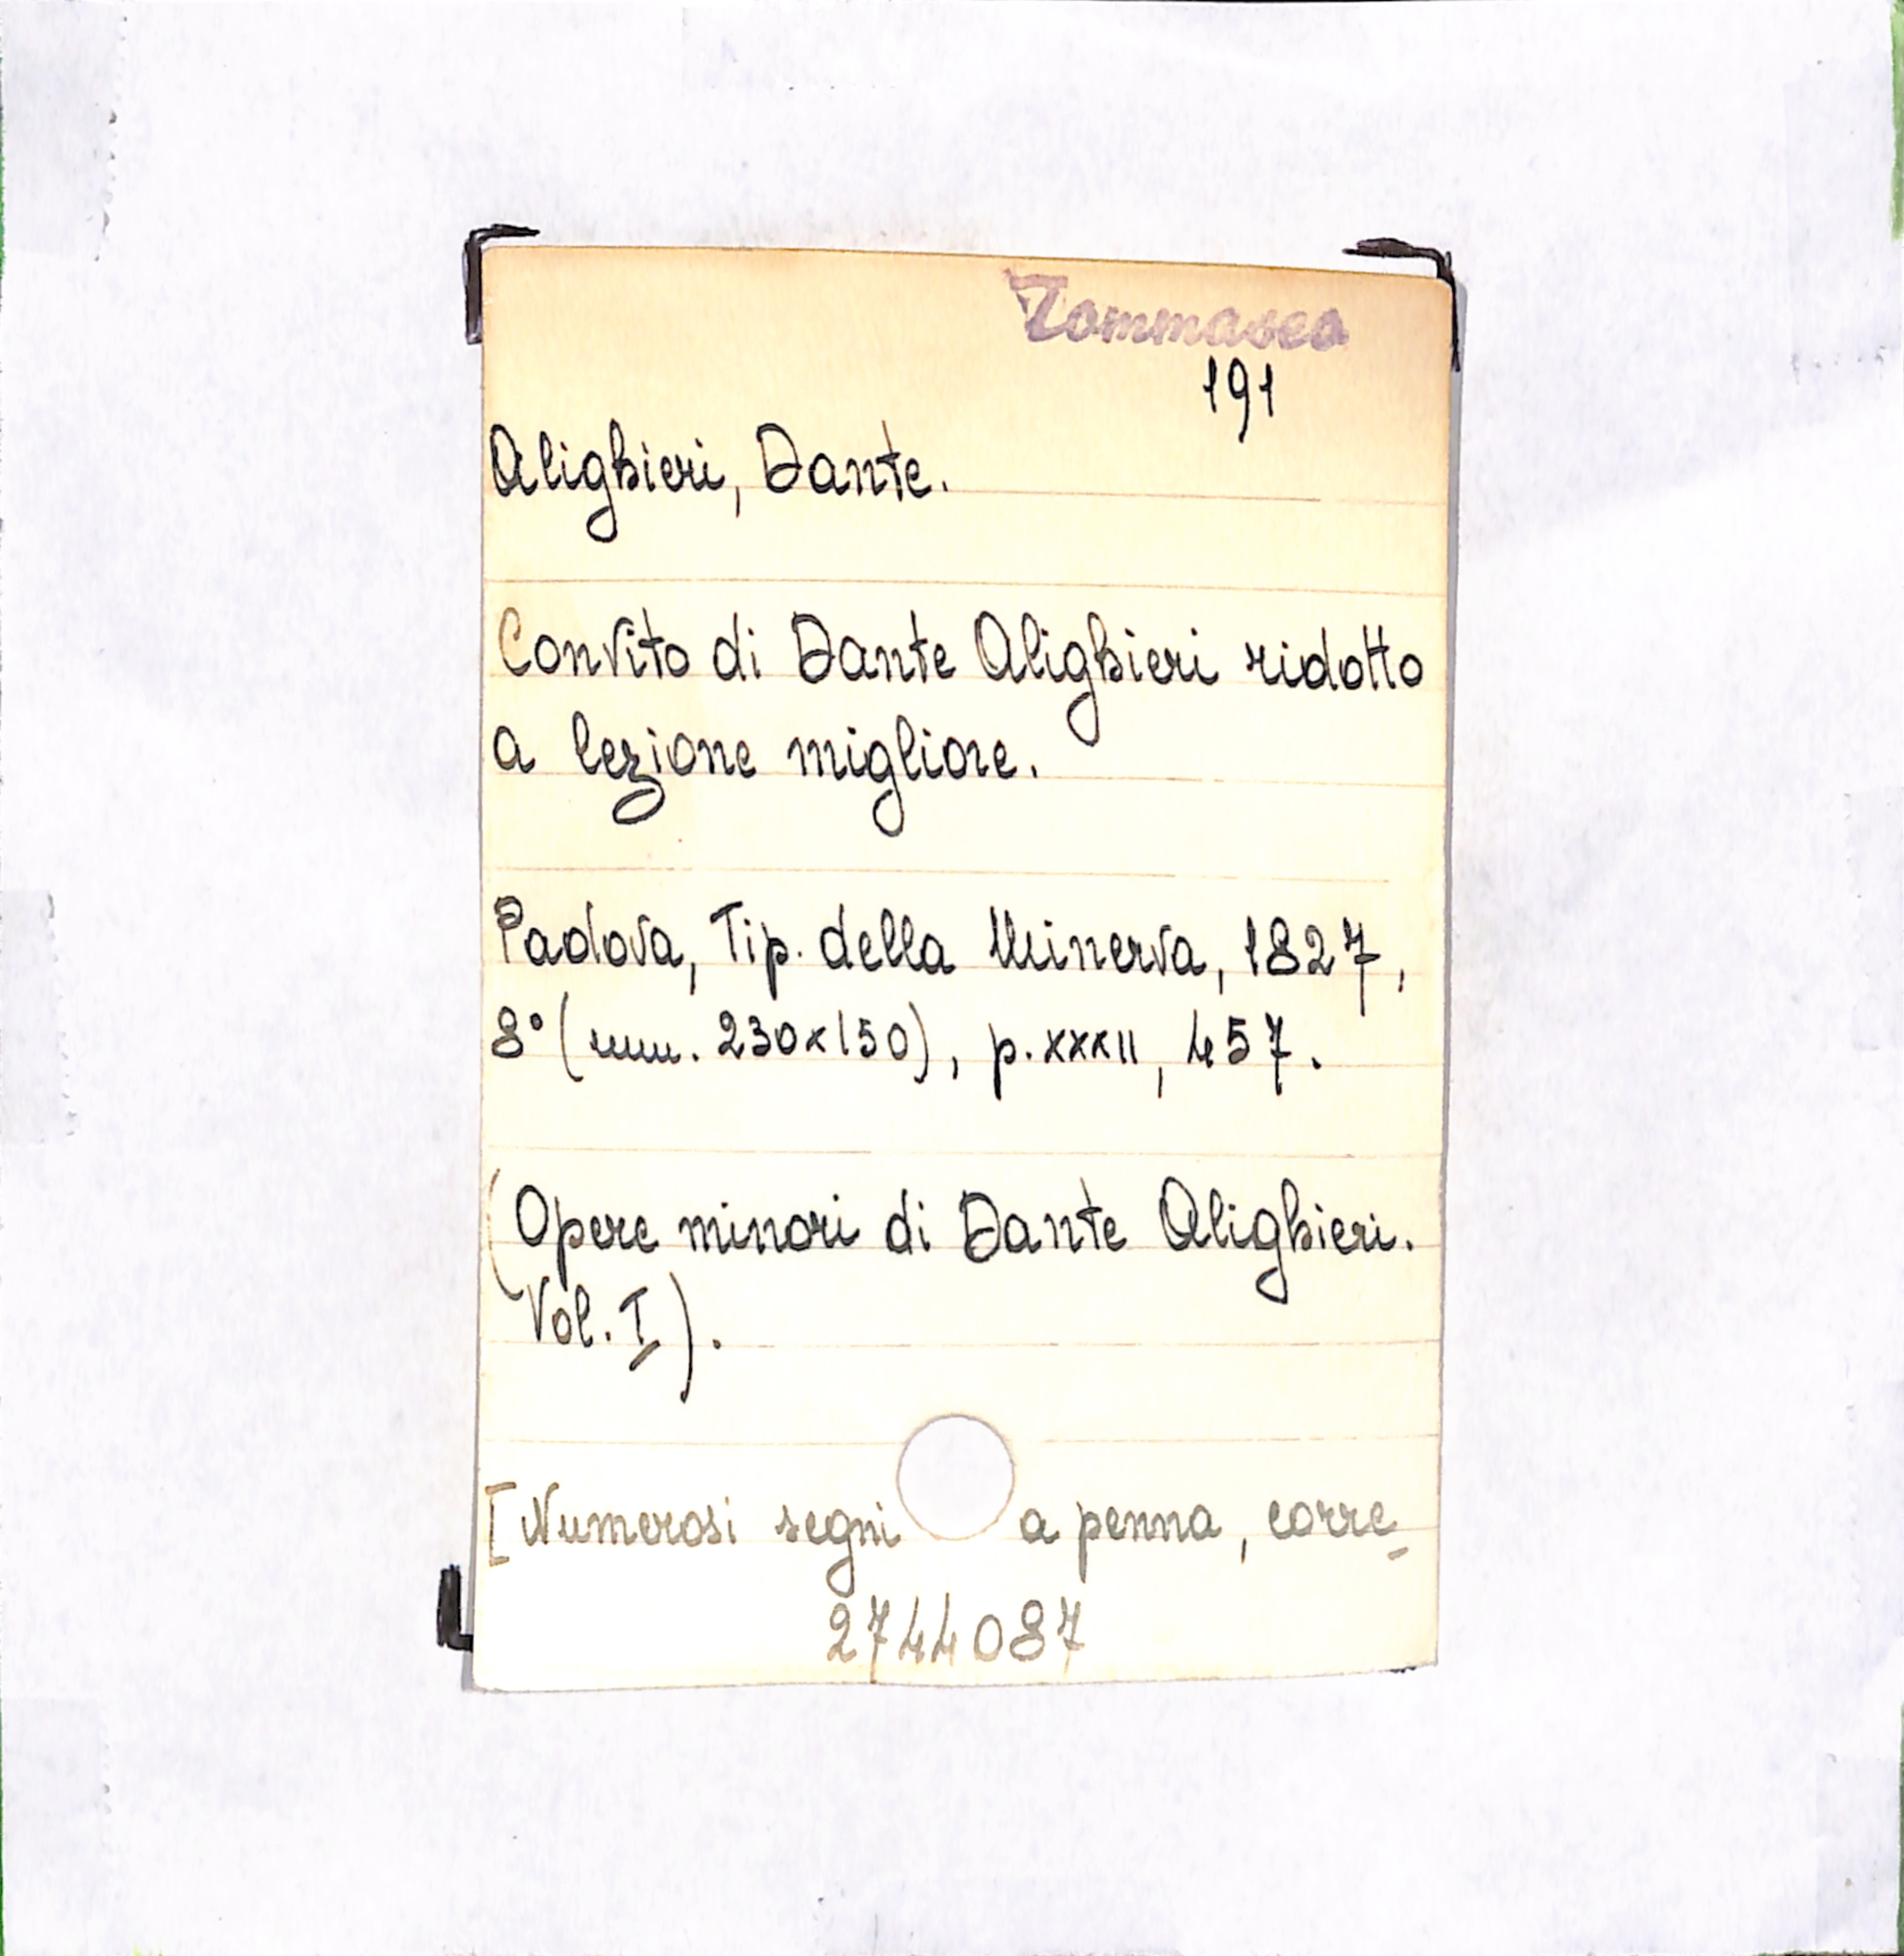 Tommaseo
191
Alighieri, Dante.
Convito di Dante Alighieri ridotto
a lezione migliore.
Padova, Tip. della Minerva, 1827,
8° (mm. 230x150), p. XXXII, 457.
(Opere minori di Dante Alighieri.
Vol. I).
[Numerosi segni a penna, corre-
2744087